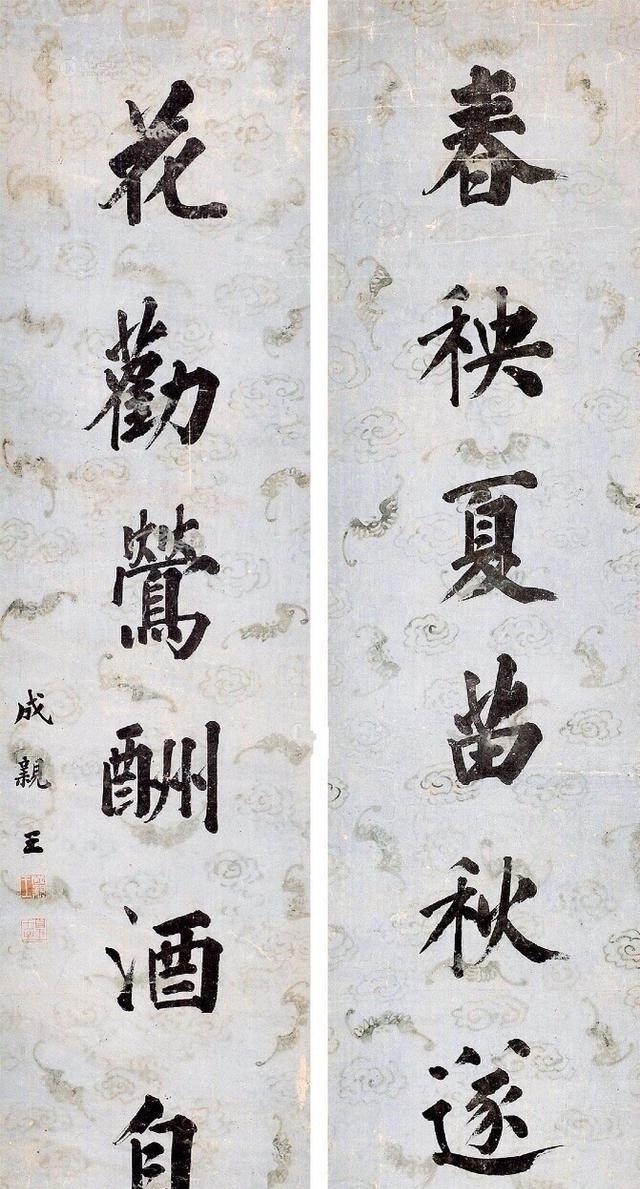 春秧夏苗秋遂
花勸鶯酬酒自
成親王